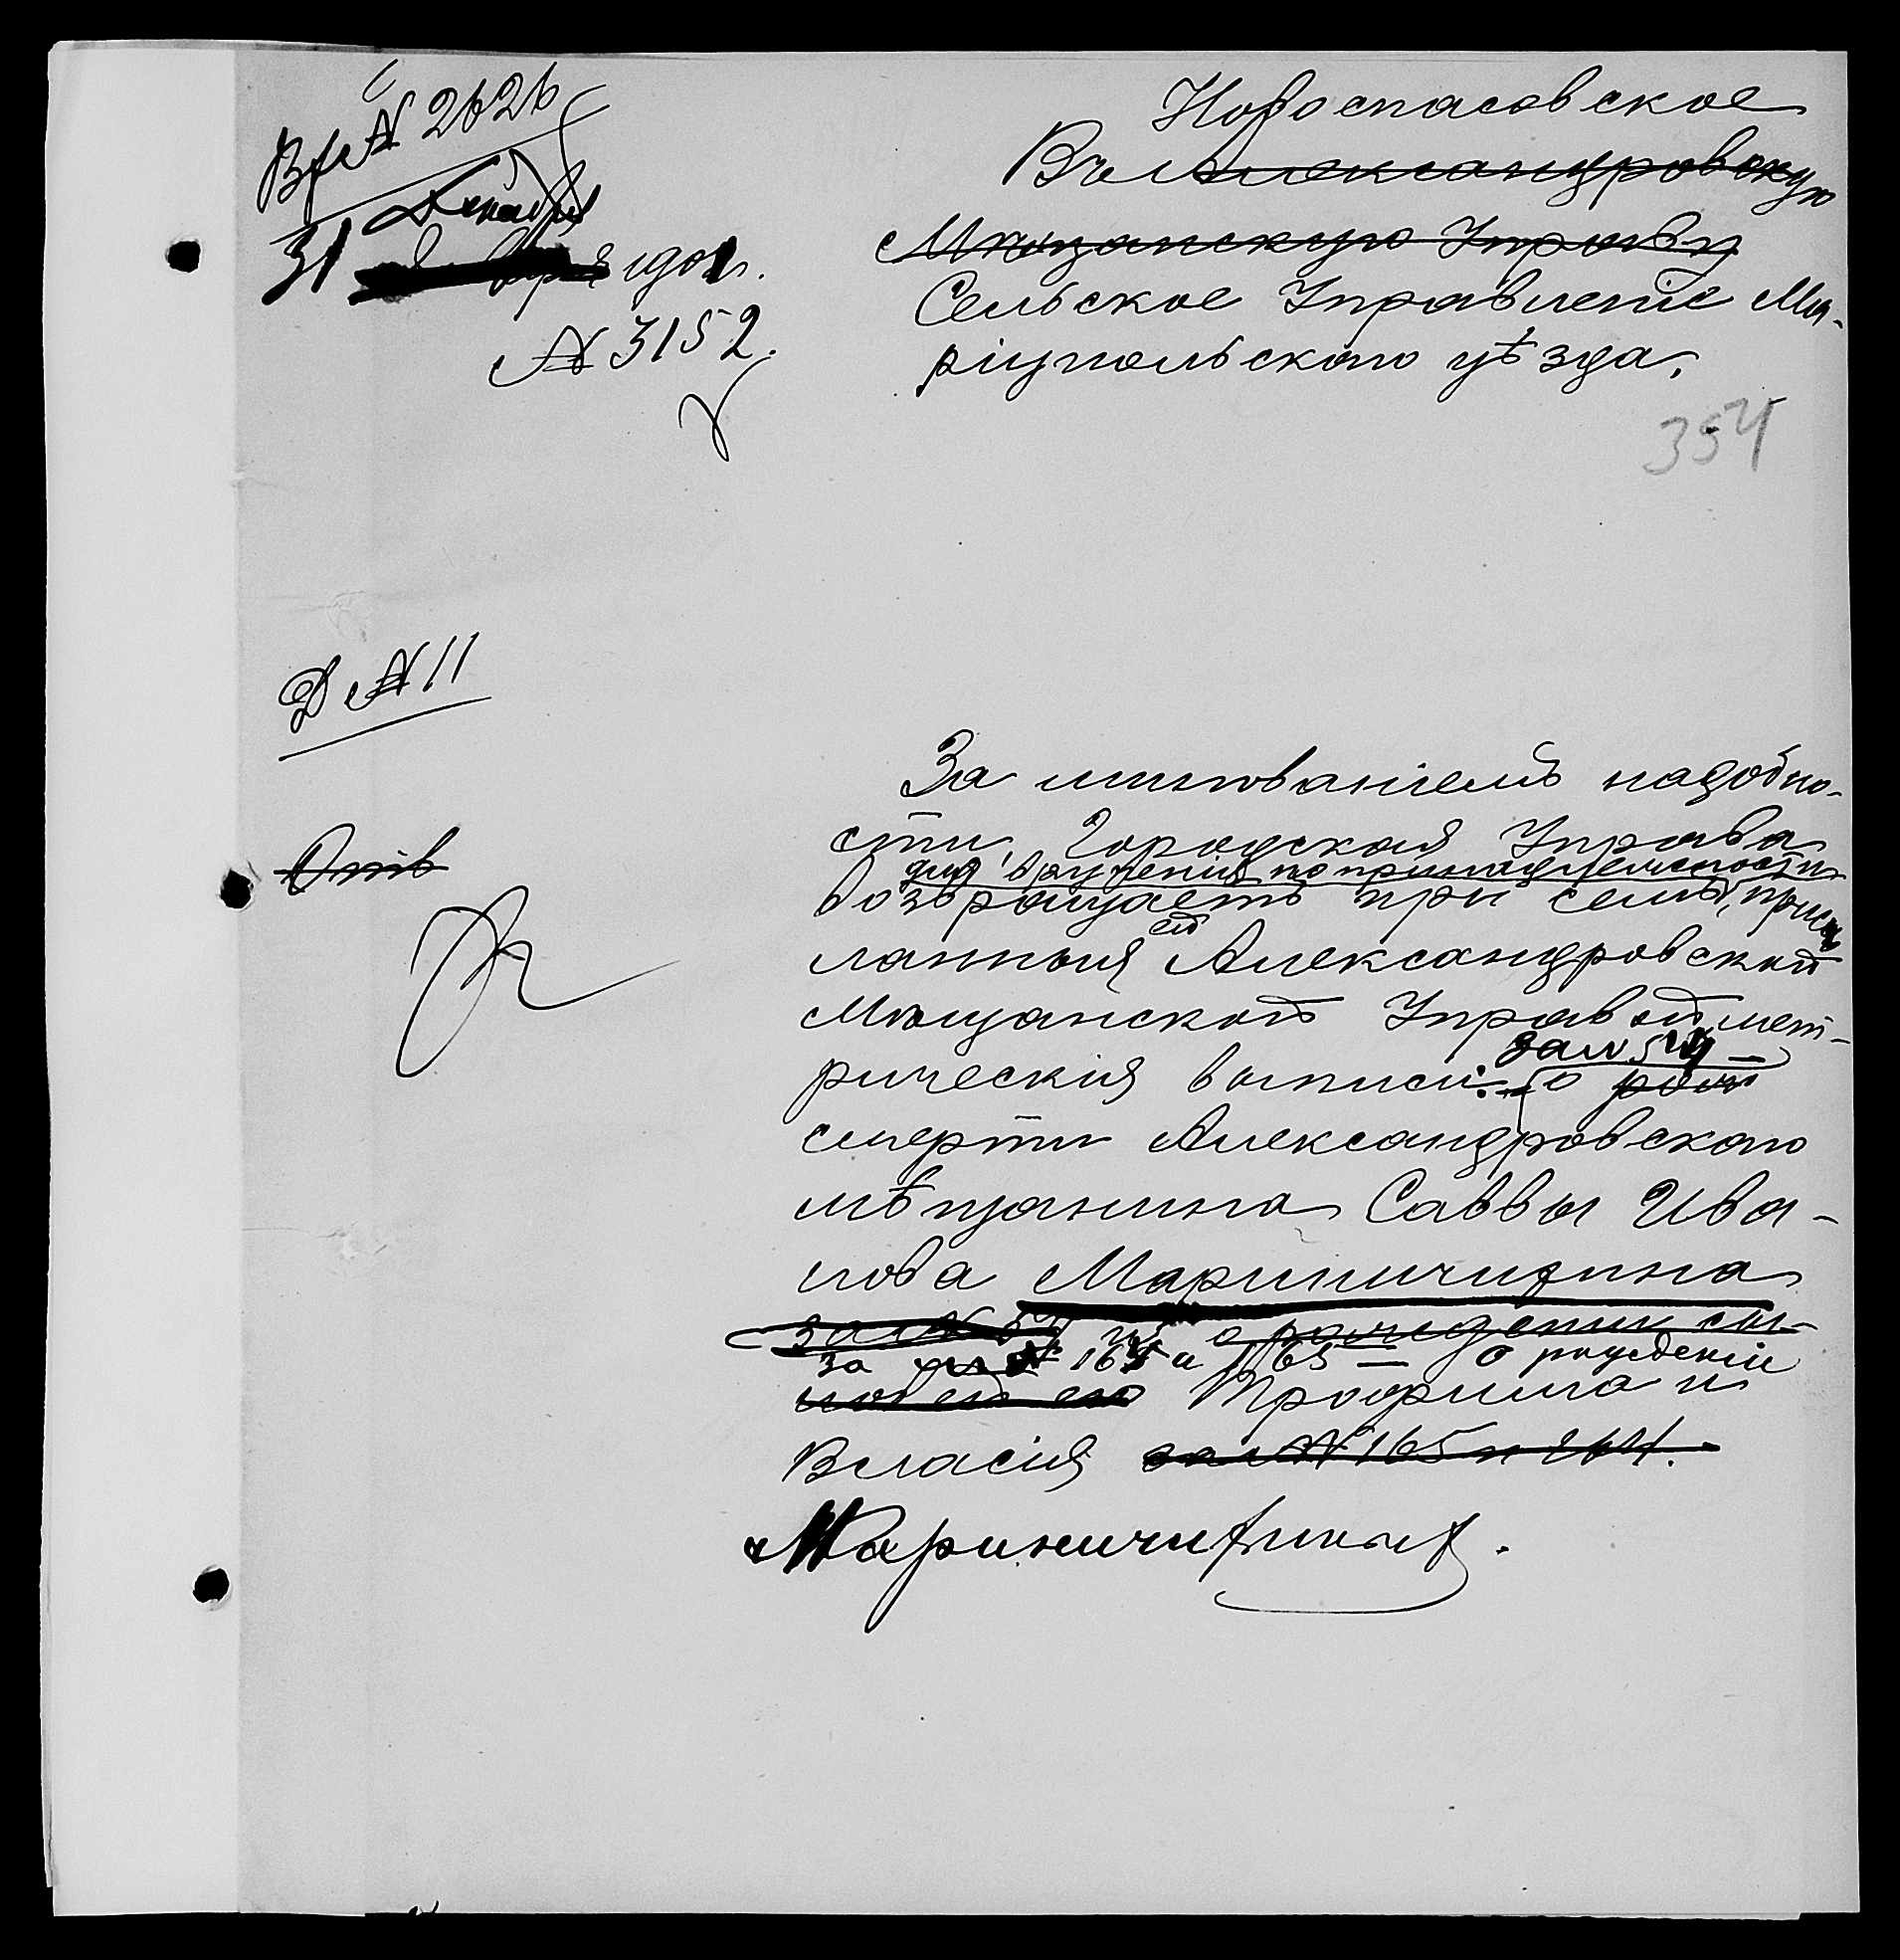 Вх № 2626
31 Декабря 1901 г.
№ 3152.
Новоспасовское
Въ Александровскую
Мѣщанскую Управу
Сельское Управленіе Ма-
ріупольскаго уѣзда.
354
Д № 11
За минованіемъ надобно-
сти, Городская Управа
для врученія по принадлежности
возвращаетъ при семъ, прис-
ланныя ей Александровской
Мѣщанской Управой мет-
рическія выписи: за № 54 – о
смерти Александровскаго
мѣщанина Саввы Ива-
нова Мариничифина
за № 54 и о рожденіи сы-
за № 164 и 165 — о рожденіи
новей его Трофима и
Власія за № 165 и 164.
Мариничифиных.